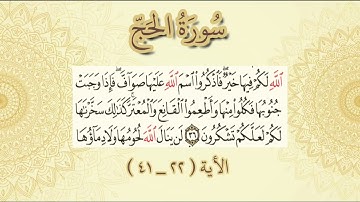 سُورَةُ الحَجّ
اللَّهِ لَكُمْ فِيهَا خَيْرٌ ۖ فَاذْكُرُوا اسْمَ اللَّهِ عَلَيْهَا صَوَافَّ ۖ فَإِذَا وَجَبَتْ
جُنُوبُهَا فَكُلُوا مِنْهَا وَأَطْعِمُوا الْقَانِعَ وَالْمُعْتَرَّ ۚ كَذَٰلِكَ سَخَّرْنَاهَا
لَكُمْ لَعَلَّكُمْ تَشْكُرُونَ ٣٦ لَن يَنَالَ اللَّهَ لُحُومُهَا وَلَا دِمَاؤُهَا
الأية ( ٢٣ _ ٤١ )